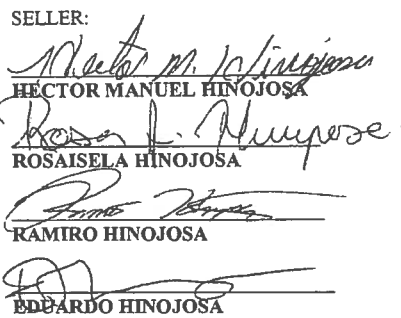 SELLER:
Hector M. Hinojosa
HECTOR MANUEL HINOJOSA
Rosa I. Hinojosa
ROSAISELA HINOJOSA
RAMIRO HINOJOSA
EDUARDO HINOJOSA